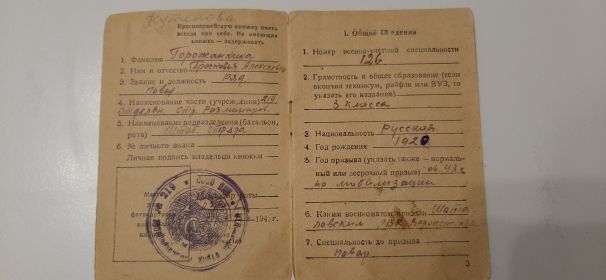 Кутепова
Красноармейскую книжку иметь
всегда при себе. Не имеющих
книжек — задерживать.
1. Фамилия Горожанкина
2. Имя и отчество Прасковья Алексеевна
3. Звание и должность Ряд.
повар
4. Наименование части (учреждения) 219
Отдельн. Отр. Разминиров.
5. Наименование подразделения (батальон,
рота)
6. № личного знака
Личная подпись владельца книжки
роты
194 г.
I. Общие сведения
1. Номер военно-учетной специальности
126
2. Грамотность и общее образование (если
окончил техникум, рабфак или ВУЗ, то
указать его название)
3 класса
3. Национальность Русская
4. Год рождения 1920
5. Год призыва (указать также — нормаль-
ный или досрочный призыв) 43 г
по мобилизации
6. Каким военкоматом призван Шата
ловским РВК Воронеж. обл.
7. Специальность до призыва
повар
3